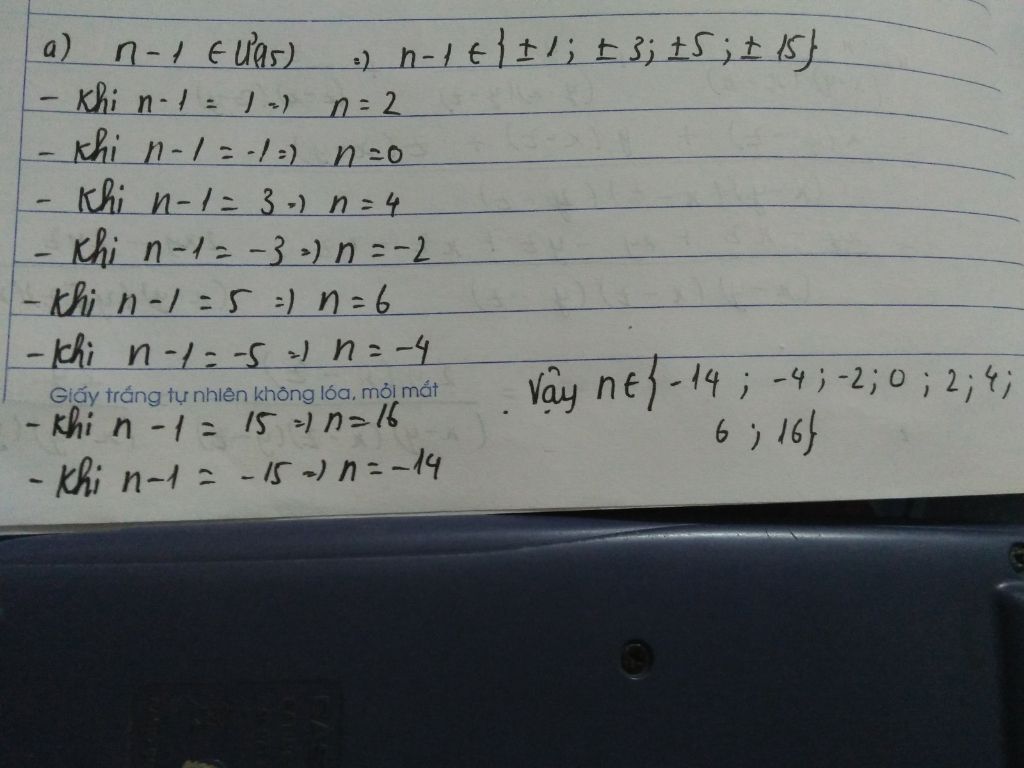 a) n - 1 ∈ Ư(15) => n - 1 ∈ { ±1; ±3; ±5; ±15}
- Khi n - 1 = 1 => n = 2
- Khi n - 1 = -1 => n = 0
- Khi n - 1 = 3 => n = 4
- Khi n - 1 = -3 => n = -2
- Khi n - 1 = 5 => n = 6
- Khi n - 1 = -5 => n = -4
Giấy trắng tự nhiên không lóa, mỏi mắt
- Khi n - 1 = 15 => n = 16
- Khi n - 1 = -15 => n = -14
. Vậy n ∈ { -14 ; -4 ; -2 ; 0 ; 2 ; 4 ;
6 ; 16}